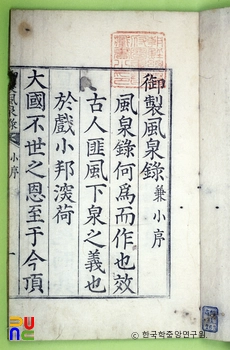 御製風泉錄 兼小序
風泉錄何爲而作也效
古人匪風下泉之義也
於戲小邦深荷
大國不世之恩至于今頂
風泉錄 小序
© 한국학중앙연구원